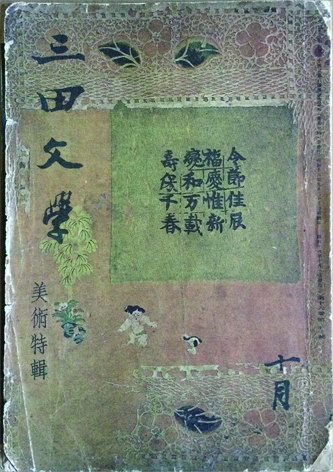 三田文學
美術特輯
令節佳辰
福慶惟新
㚌和万載
壽保千春
十月